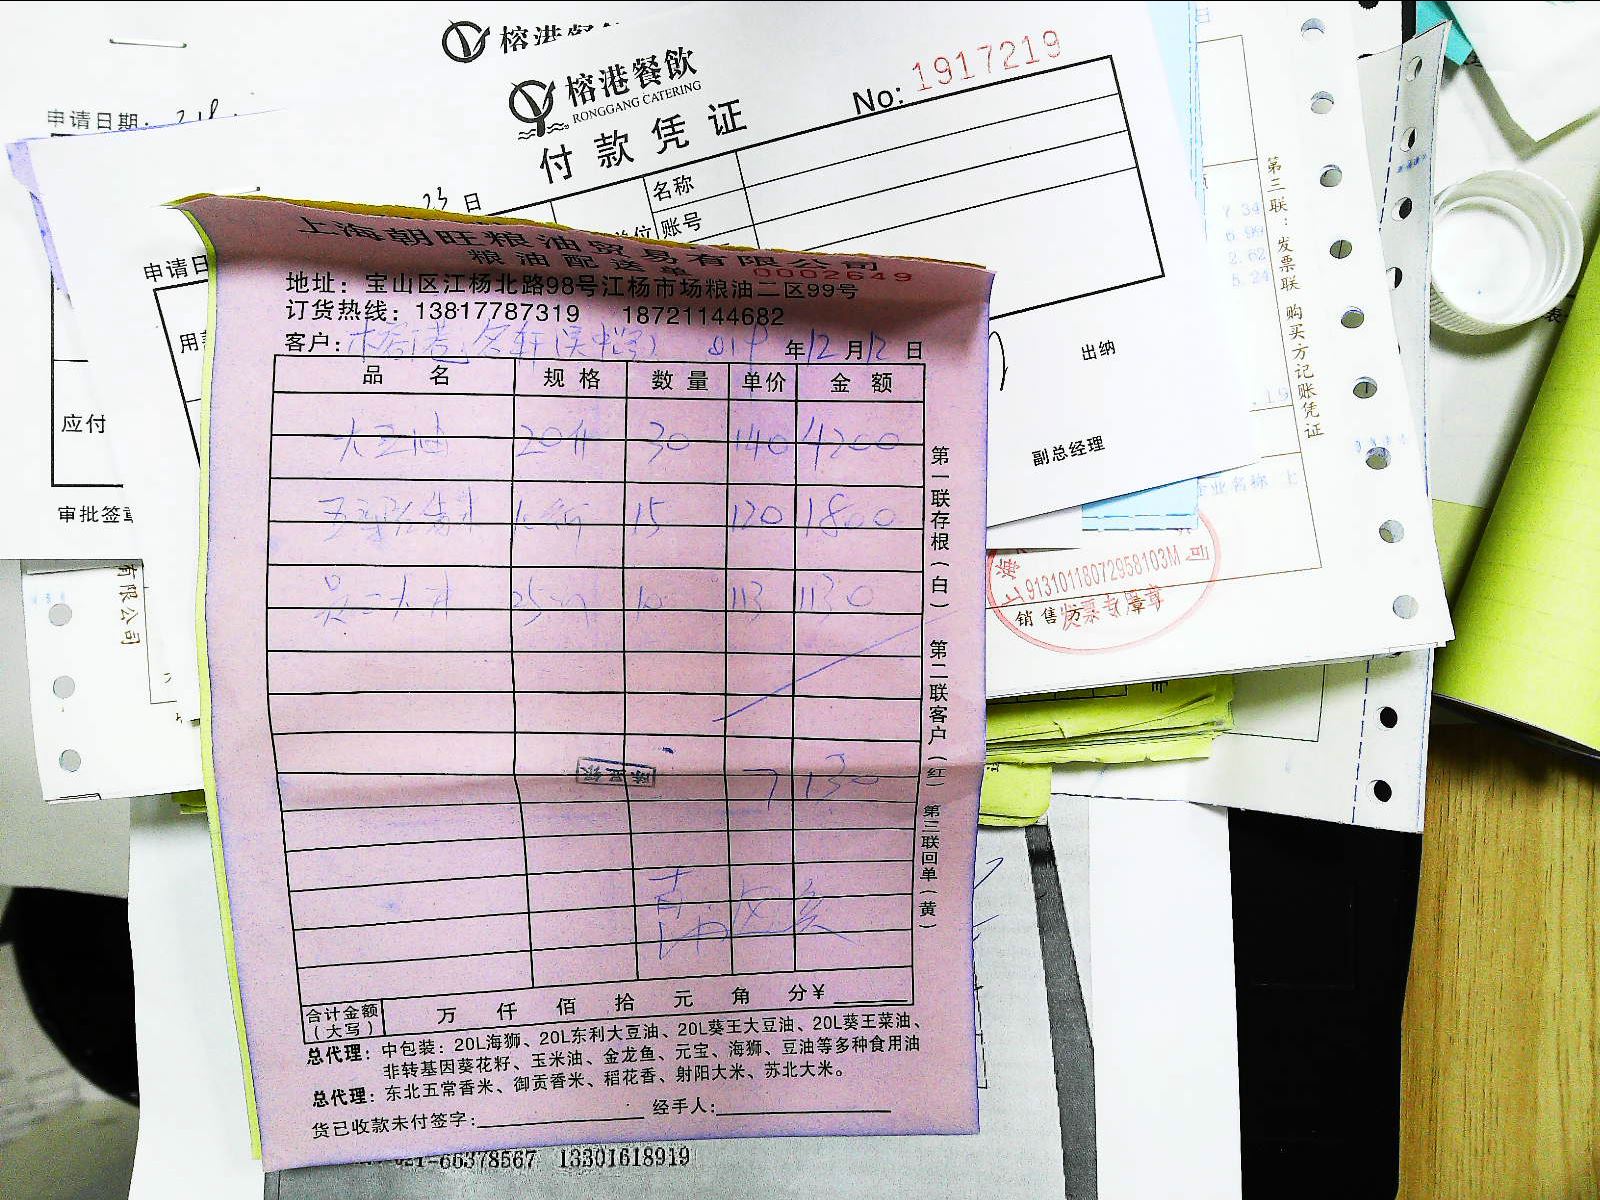 榕港餐
榕港餐飲
RONGGANG CATERING
付款凭证
No: 1917219
申请日期：
23 日
名称
单位 账号
申请日
用
应付
审批签章
出纳
副总经理
第三联：发票联 购买方记账凭证
7.34
6.99
2.62
5.24
.19
企业名称 上
91310118072958103M
销售方：章
发票专用章
有限公司
上海朝旺粮油贸易有限公司
粮油配送单 0002649
地址：宝山区江杨北路98号江杨市场粮油二区99号
订货热线：13817787319 18721144682
客户：榕港 年12月12日
品名 规格 数量 单价 金额
大豆油 20升 30 140 4200
15 120 1800
10 113 1130
7130
合计金额（大写） 万 仟 佰 拾 元 角 分¥
总代理：中包装：20L海狮、20L东利大豆油、20L葵王大豆油、20L葵王菜油、
非转基因葵花籽、玉米油、金龙鱼、元宝、海狮、豆油等多种食用油
总代理：东北五常香米、御贡香米、稻花香、射阳大米、苏北大米。
货已收款未付签字： 经手人：
第一联存根（白） 第二联客户（红） 第三联回单（黄）
021-66378567 13301618919